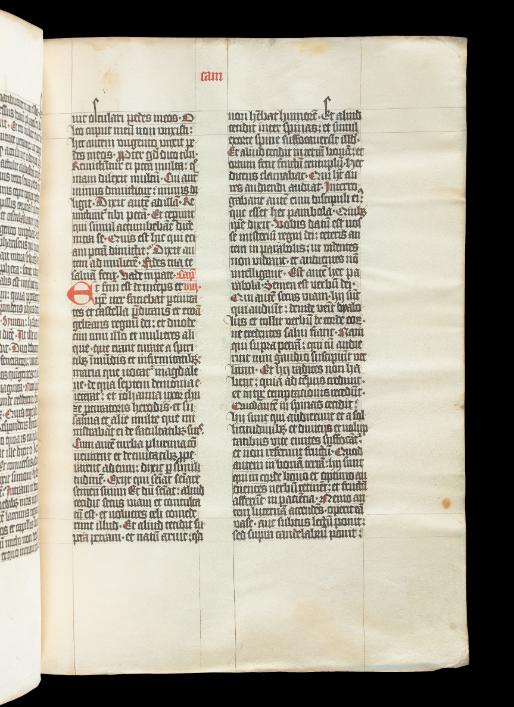 cam
uit osculari pedes meos. O
leo caput meū non unxisti:
hec autem ungento unxit pe
des meos. Propter qđ dico tibi:
Remittentur ei pccā multa: qm̄
niam dilexit multū. Cui autē
minus dimittitur: minus di
ligit. Dixit autē ad illā. Re
mittunt̄ tibi pccā. Et ceperunt
qui simul accumbebāt dice
inter se. Quis est hic qui eti
am pccā dimittit. Dixit au
tem ad mulierē. Fides tua te
saluā fecit. Vade in pace. Cap̄
Et factū est deinceps et viij.
ipse iter faciebat p ciuita
tes et castella p̄dicans et euā
gelizans regnū dei: et duode
cim cum illo et mulieres ali
que. que erant curate a spiri
tibꝫ malignis et infirmitatibꝫ.
maria que uocat̄ magdale
ne. de qua septem demonia e
xierant: et iohanna uxor chu
ze procuratoris herodis. et su
sanna et alie multe que mi
nistrabāt ei de facultatibꝫ suis.
Cum autē turba plurima cō
ueniret et de ciuitatibꝫ pro
perarēt ad eum: dixit p simili
tudinē. Exiit qui seiāt seīare
semen suum. Et dū seiāt: aliud
cecidit secus uiam et conculca
tū est. et uolucres celi comede
runt illud. Et aliud cecidit su
pra petram. et natū aruit: qa
non h̄ebat humorē. Et aliud
cecidit inter spinas: et simul
exorte spine suffocauerūt illđ.
Et aliud cecidit in terrā bonā: et
ortum fecit fructū centuplū. Hec
dicens clamabat. Qui h̄t au
res audiendi audiat. Interro
gabant autē eum discipuli ei:
que esset hec parabola. Quibꝫ
ipse dixit. Vobis datū est nos
se misteriū regni dei: ceteris au
tem in parabolis: ut uidentes
non uideāt. et audientes nō
intelligant. Est autē hec pa
rabola. Semen est verbū dei.
Qui autē secus uiam. hij sunt
qui audiunt: deinde uenit dyabo
lus et tollit verbū de corde eoꝝ.
ne credentes salui fiant. Nam
qui supra petrā: qui cū audie
rint cum gaudio suscipiunt ver
bum. Et hij radices non ha
bent: quia ad tēpus credunt.
et in tp̄e temptationis recedūt.
Quod autē in spinas cecidit:
hij sunt qui audierunt et a sol
licitudinibꝫ et diuicijs et uolup
tatibus uite euntes suffocāt̄.
et non referunt fructū. Quod
autem in bonā terrā: hij sunt
qui in corde bono et optimo au
dientes verbū retinēt: et fructū
afferūt in paciētia. Nemo au
tem lucernā accendēs. operit eā
vase. aut subtus lectū ponit:
sed supra candelabrū ponit: